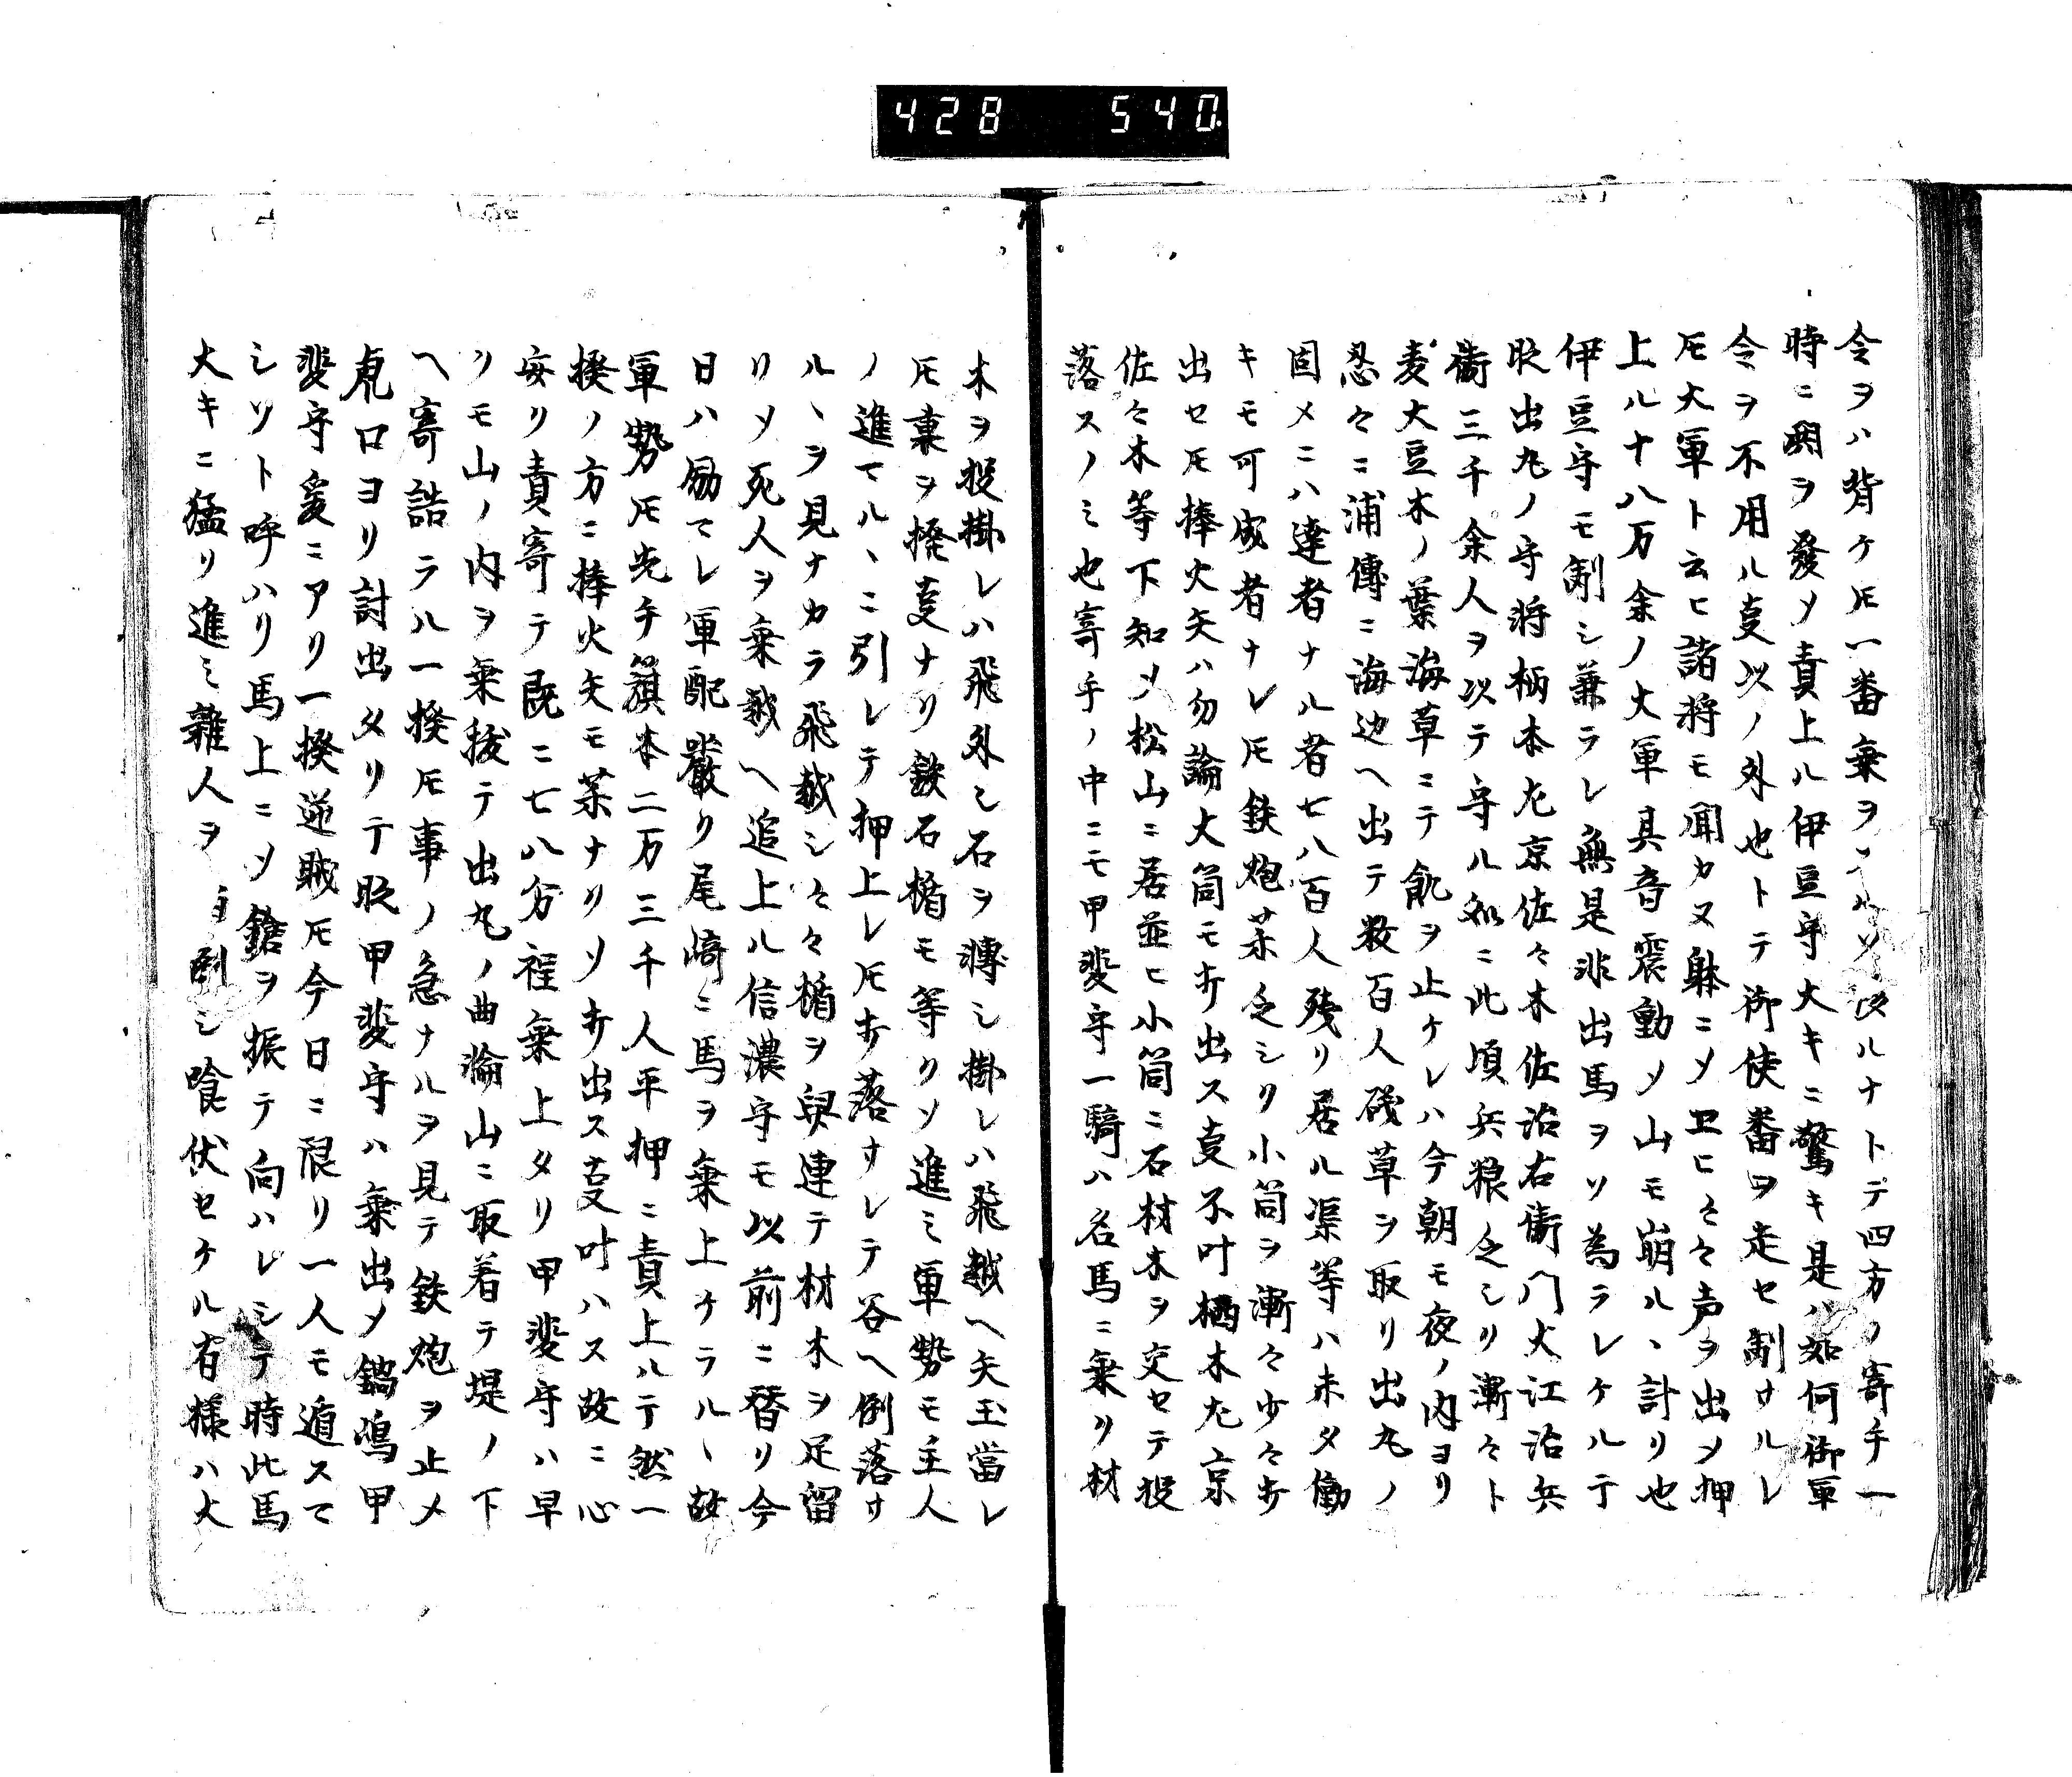 428 540
令ヲハ背ケ𪜈一番乗ヲ ルナトテ四方ノ寄手一
時ニ鬨ヲ發〆責上ル伊豆守大キニ驚キ是ハ如何御軍
令ヲ不用ル叓以ノ外也トテ御使番ヲ走セ制サルレ
𪜈大軍ト云ヒ諸将モ聞カヌ躰ニ〆ヱヒ〻〻声ヲ出〆押
上ル十八万余ノ大軍具音震動〆山モ崩ル丶計リ也
伊豆守モ制シ兼ラレ無是非出馬ヲソ為ラレケルテ
㫪出丸ノ守将柄本尤京佐々木佐治右衞門大江治兵
衞三千余人ヲ以テ守ル処ニ此頃兵粮乏シリ漸々ト
麦大豆木ノ葉海草ニテ飢ヲ止ケレハ今朝モ夜ノ内ヨリ
忍々ニ浦傳ニ海辺ヘ出テ数百人磯草ヲ取リ出丸ノ
固メニハ達者ナル者七八百人残リ居ル渠等ハ未タ働
キモ可成者ナレ𪜈鉄炮薬乏シリ小筒ヲ漸々少々打
出セ𪜈棒火矢ハ勿論大筒モ打出ス叓不叶栖木左京
佐々木等下知〆松山ニ居並ヒ小筒ニ石材木ヲ交セテ投
落スノミ也寄手ノ中ニモ甲斐守一騎ハ名馬ニ乗リ材
木ヲ投掛レハ飛外シ石ヲ轉シ掛レハ飛越ヘ矢玉當レ
𪜈裏ヲ掻叓ナリ鉄石楯モ等クソ進ミ軍勢モ主人
ノ進マル丶ニ引レテ押上レ𪜈打落サレテ谷ヘ倒落サ
ル丶ヲ見ナカラ飛越シ〻〻楯ヲ舁連テ材木ヲ足留
リソ死人ヲ乗越ヘ追上ル信濃守モ以前ニ替リ今
日ハ励マレ軍配嚴ク尾崎ニ馬ヲ乗上ケラル丶故
軍勢𪜈先手籏本二万三千人平押ニ責上ルテ然一
揆ノ方ニ棒火矢モ薬ナリソ打出ス叓叶ハス故ニ心
安リ責寄テ既ニ七八分程乗上タリ甲斐守ハ早
リモ山ノ内ヲ乗抜テ出丸ノ曲淪山ニ取着テ堤ノ下
ヘ寄詰ラル一揆𪜈事ノ急ナルヲ見テ鉄炮ヲ止メ
虎口ヨリ討出タリテ㫪甲斐守ハ乗出〆鍋嶋甲
斐守爰ニアリ一揆逆賊𪜈今日ニ限リ一人モ遁スマ
シソト呼ハリ馬上ニソ鎗ヲ振テ向ハレシテ時此馬
大キニ猛リ進ミ雜人ヲ 倒シ喰伏セケル有様ハ大